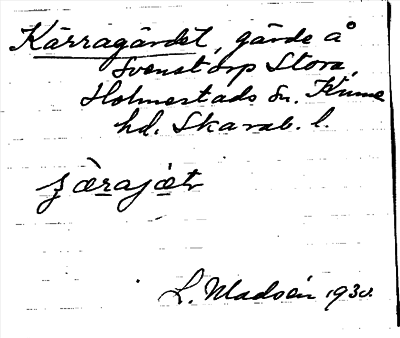 Kärragärdet, gärde å
Svenstorp Stora,
Holmestads sn. Kinne
hd. Skarab. l.
L. Madsén 1930.